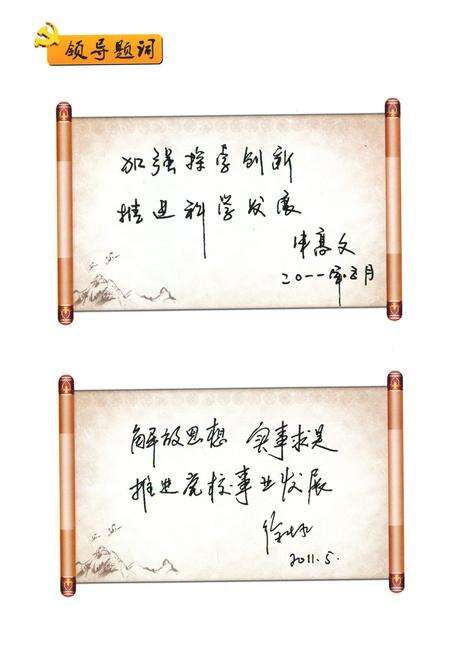 领导题词
加强探索创新
推进科学发展
二〇一一年五月
解放思想 实事求是
推进党校事业发展
2011.5.